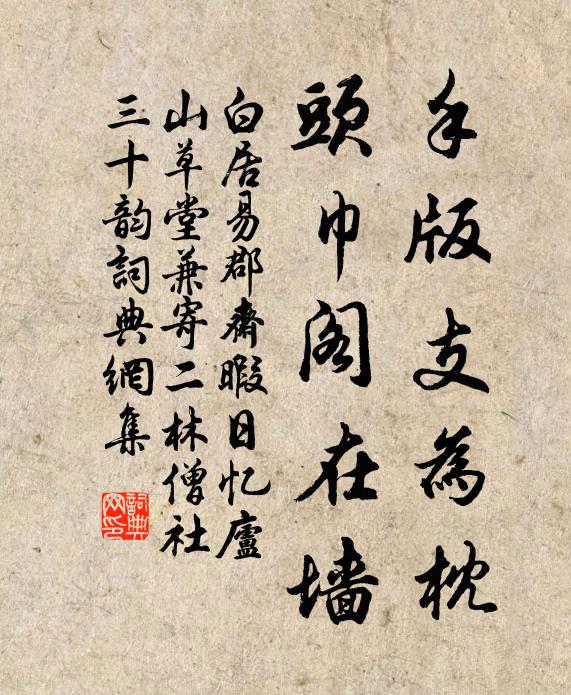 手版支為枕
頭巾閣在墙
白居易郡齋暇日忆廬
山草堂兼寄二林僧社
三十韵詞典網集
詞典
网印